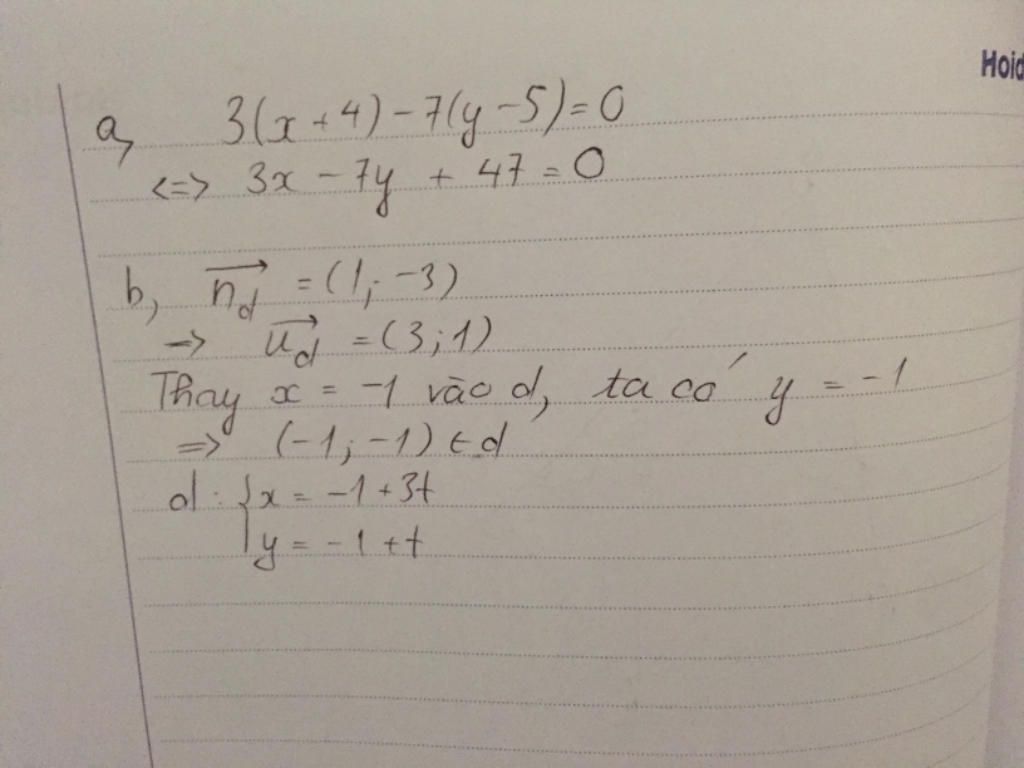 Hoid
a, 3(x+4)-7(y-5)=0
<=> 3x - 7y + 47 = 0
b, \overrightarrow{n_d} = (1; -3)
-> \overrightarrow{u_d} = (3; 1)
Thay x = -1 vào d, ta có y = -1
=> (-1; -1) ∈ d
d: { x = -1+3t
y = -1+t